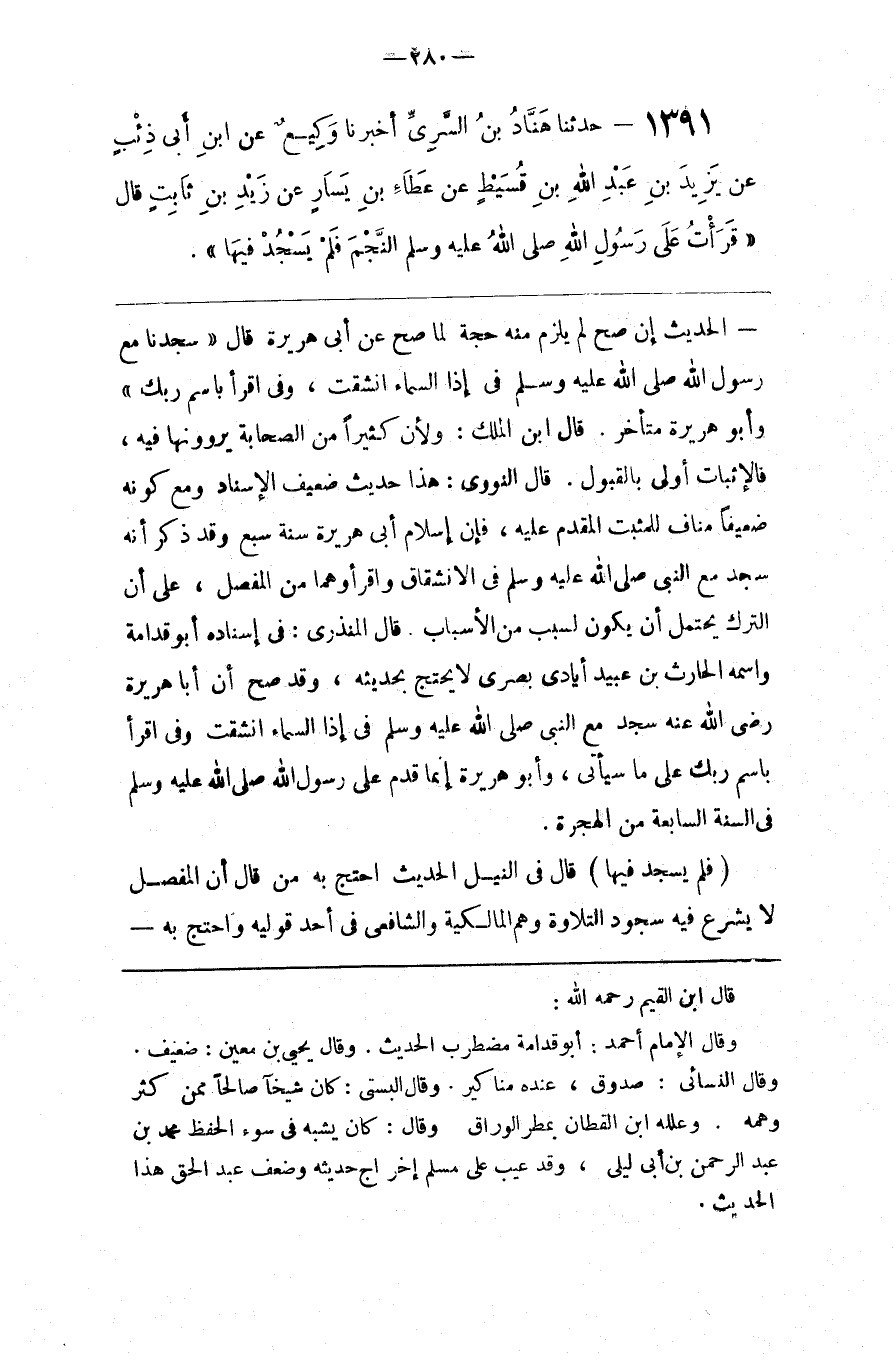 — ٢٨٠ —
١٣٩١ — حدثنا هَنَّادُ بنُ السَّرِىِّ أخبرنا وَكِيعٌ عن ابنِ أَبى ذِئْبٍ
عن يَزِيدَ بنِ عَبْدِ اللهِ بنِ قُسَيْطٍ عن عَطَاءِ بنِ يَسَارٍ عن زَيْدِ بنِ ثَابِتٍ قال
« قَرَأْتُ عَلَى رَسُولِ اللهِ صلى اللهُ عليه وسلم النَّجْمَ فَلَمْ يَسْجُدْ فيهَا » .
— الحديث إن صح لم يلزم منه حجة لما صح عن أبى هريرة قال « سجدنا مع
رسول الله صلى الله عليه وسلم فى إذا السماء انشقت ، وفى اقرأ باسم ربك »
وأبو هريرة متأخر . قال ابن الملك : ولأن كثيراً من الصحابة يروونها فيه ،
فالإثبات أولى بالقبول . قال النووى : هذا حديث ضعيف الإسناد ومع كونه
ضعيفاً مناف للمثبت المقدم عليه ، فإن إسلام أبى هريرة سنة سبع وقد ذكر أنه
سجد مع النبى صلى الله عليه وسلم فى الانشقاق واقرأ وهما من المفصل ، على أن
الترك يحتمل أن يكون لسبب من الأسباب . قال المنذرى : فى إسناده أبو قدامة
واسمه الحارث بن عبيد أيادى بصرى لا يحتج بحديثه ، وقد صح أن أبا هريرة
رضى الله عنه سجد مع النبى صلى الله عليه وسلم فى إذا السماء انشقت وفى اقرأ
باسم ربك على ما سيأتى ، وأبو هريرة إنما قدم على رسول الله صلى الله عليه وسلم
فى السنة السابعة من الهجرة .
( فلم يسجد فيها ) قال فى النيل الحديث احتج به من قال أن المفصل
لا يشرع فيه سجود التلاوة وهم المالكية والشافعى فى أحد قوليه واحتج به —
قال ابن القيم رحمه الله :
وقال الإمام أحمد : أبو قدامة مضطرب الحديث . وقال يحيى بن معين : ضعيف .
وقال النسائى : صدوق ، عنده مناكير . وقال البستى : كان شيخاً صالحاً ممن كثر
وهمه . وعلله ابن القطان بمطر الوراق وقال : كان يشبه فى سوء الحفظ محمد بن
عبد الرحمن بن أبى ليلى ، وقد عيب على مسلم إخراج حديثه وضعف عبد الحق هذا
الحديث .